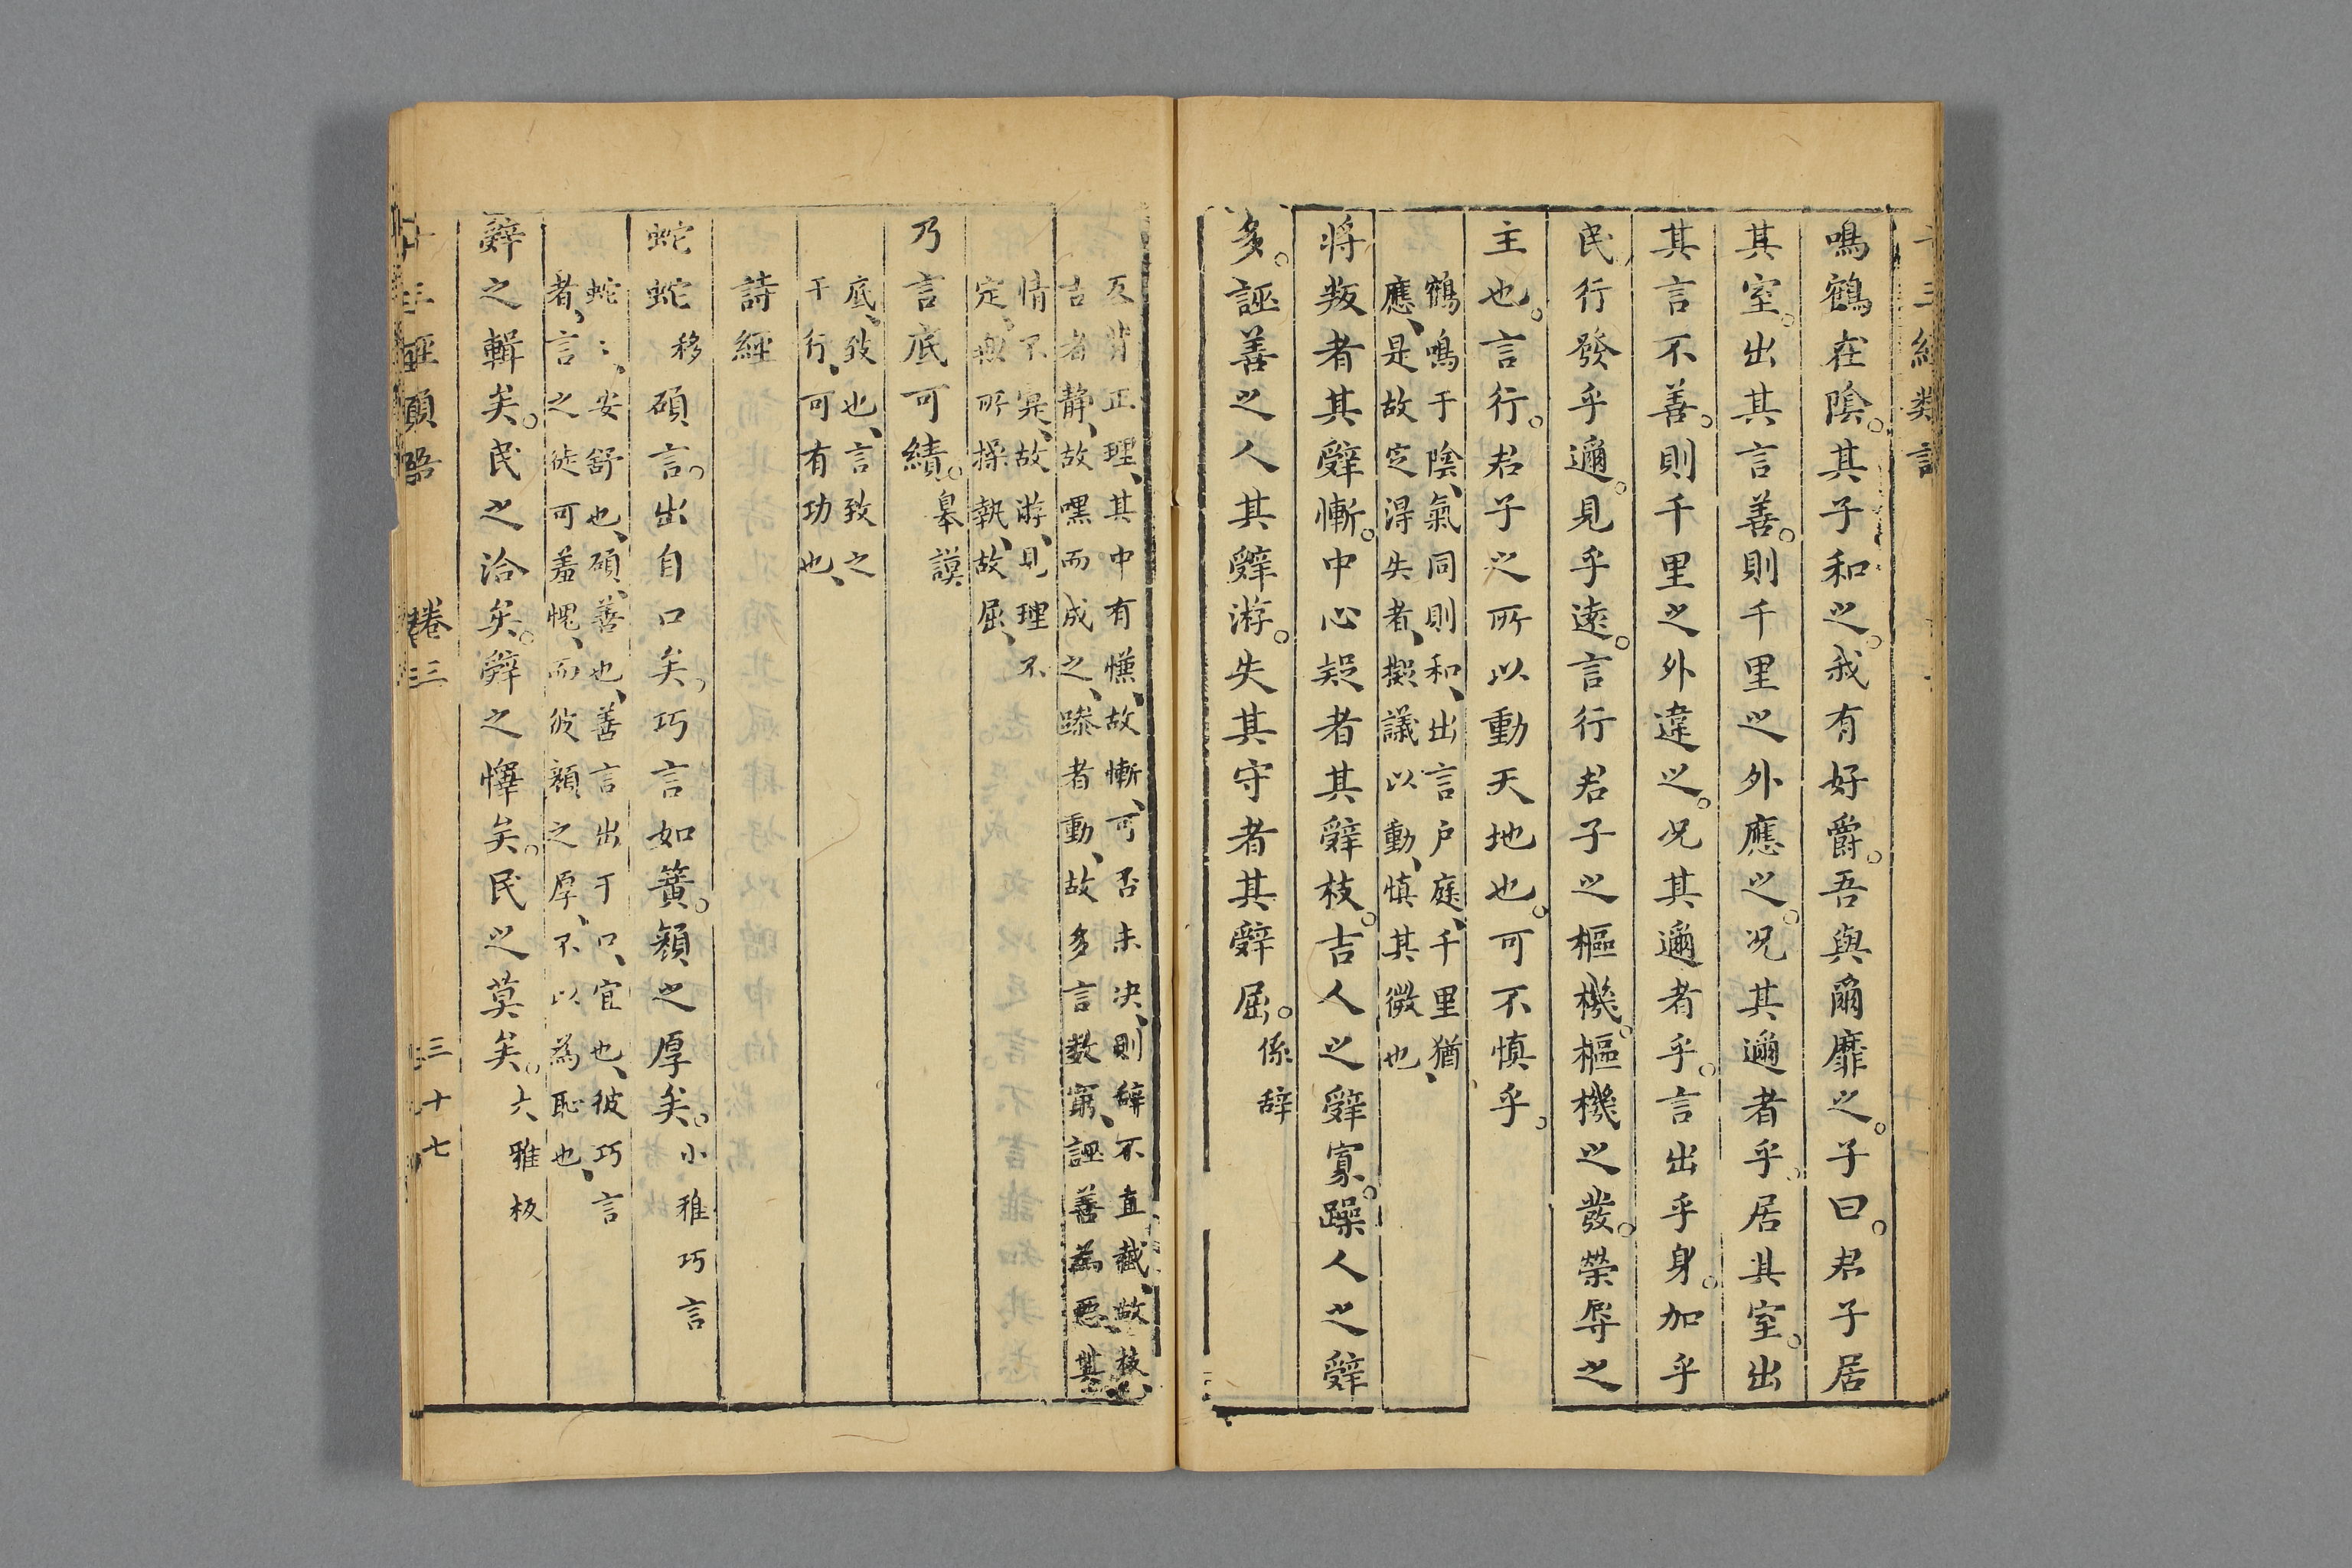 十三經類語
鳴鶴在陰。其子和之。我有好爵。吾與爾靡之。子曰。君子居
其室。出其言善。則千里之外應之。况其邇者乎。居其室。出
其言不善。則千里之外違之。况其邇者乎。言出乎身。加乎
民。行發乎邇。見乎遠。言行君子之樞機。樞機之發。榮辱之
主也。言行。君子之所以動天地也。可不慎乎。
鶴鳴于陰、氣同則和、出言户庭、千里猶
應、是故定得失者、擬議以動、慎其微也、
将叛者其辭慚。中心疑者其辭枝。吉人之辭寡。躁人之辭
多。誣善之人其辭游。失其守者其辭屈。係辞
反背正理、其中有慊、故慚、可否未决、則辞不直截、故枝、
吉者静、故嘿而成之、躁者動、故多言数窮、誣善為惡、其
情不寔、故游、見理不
定、無所操執、故屈、
乃言底可績。皋謨
底、致也、言致之
于行、可有功也、
詩經
蛇蛇移碩言。出自口矣。巧言如簧。顏之厚矣。小雅巧言
蛇〻、安舒也、碩、善也、善言出于口、宜也、彼巧言
者、言之徒可羞愧、而彼顏之厚、不以為恥也、
辭之輯矣。民之洽矣。辭之懌矣。民之莫矣。大雅板
卷三
三十七